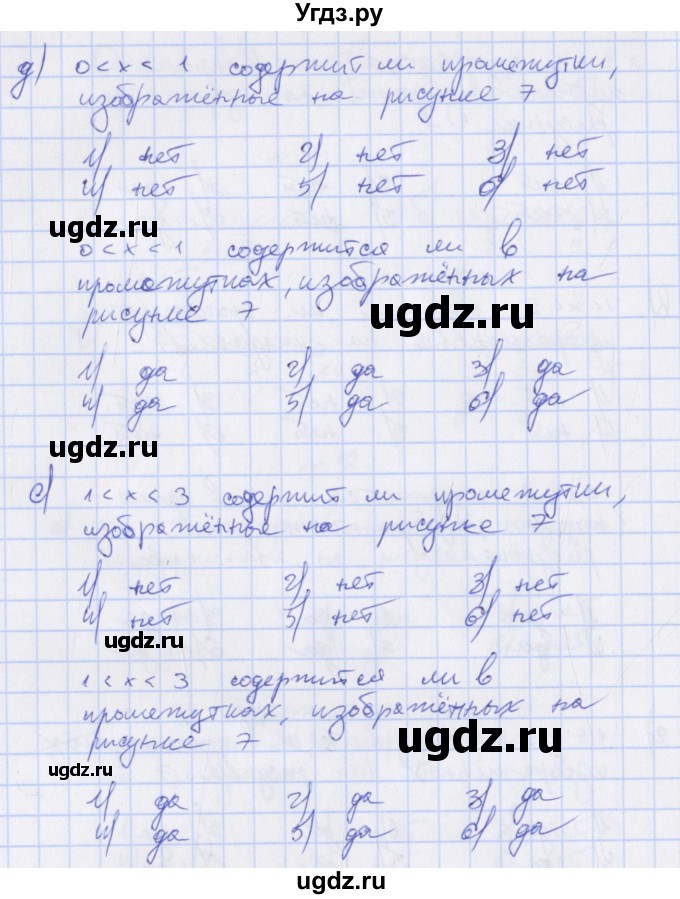 Угдз.ру
д) 0 < x < 1 содержит ли промежутки,
изображённые на рисунке 7
1) нет 2) нет 3) нет
4) нет 5) нет 6) нет
ugdz.ru
0 < x < 1 содержится ли в
промежутках, изображённых на
рисунке 7
ugdz.ru
1) да 2) да 3) да
4) да 5) да 6) да
ugdz.ru
е) 1 < x < 3 содержит ли промежутки,
изображённые на рисунке 7
1) нет 2) нет 3) нет
4) нет 5) нет 6) нет
ugdz.ru
1 < x < 3 содержится ли в
промежутках, изображённых на
рисунке 7
ugdz.ru
ugdz.ru
1) да 2) да 3) да
4) да 5) да 6) да
ugdz.ru